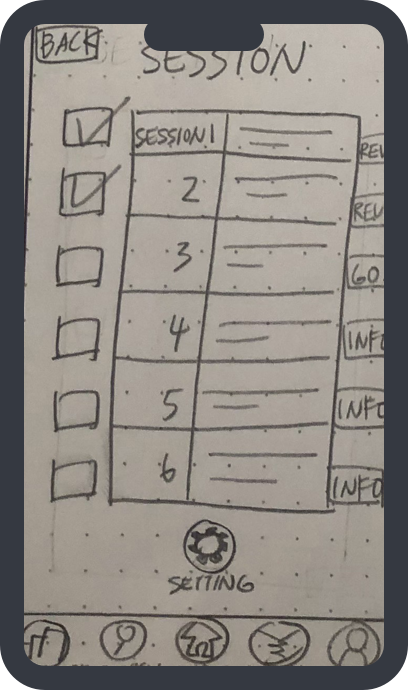 BACK
SESSION
SESSION 1
REV
2
REV
3
GO
4
INFO
5
INFO
6
INFO
SETTING